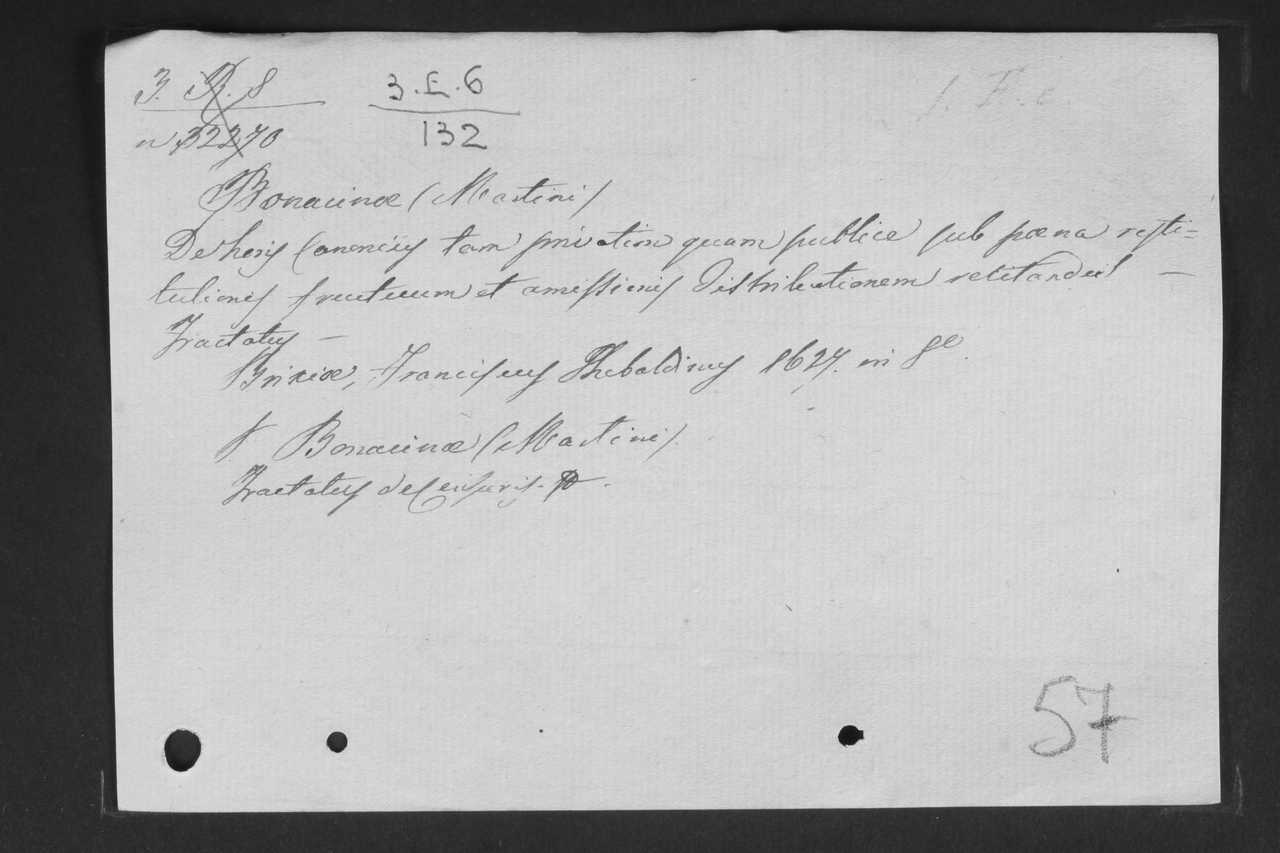 3. B. 8
3.E.6
1. F. c.
n 32270
132
Bonacinæ (Martini)
De horis Canonicis tam privatim quam publice sub pœna resti=
tutionis fructuum et amissionis distributionem recitandis —
Tractatus —
Brixiæ, Franciscus Thebaldinus 1627. in 8º.
Bonacinæ (Martini).
Tractatus de Censuris.
57